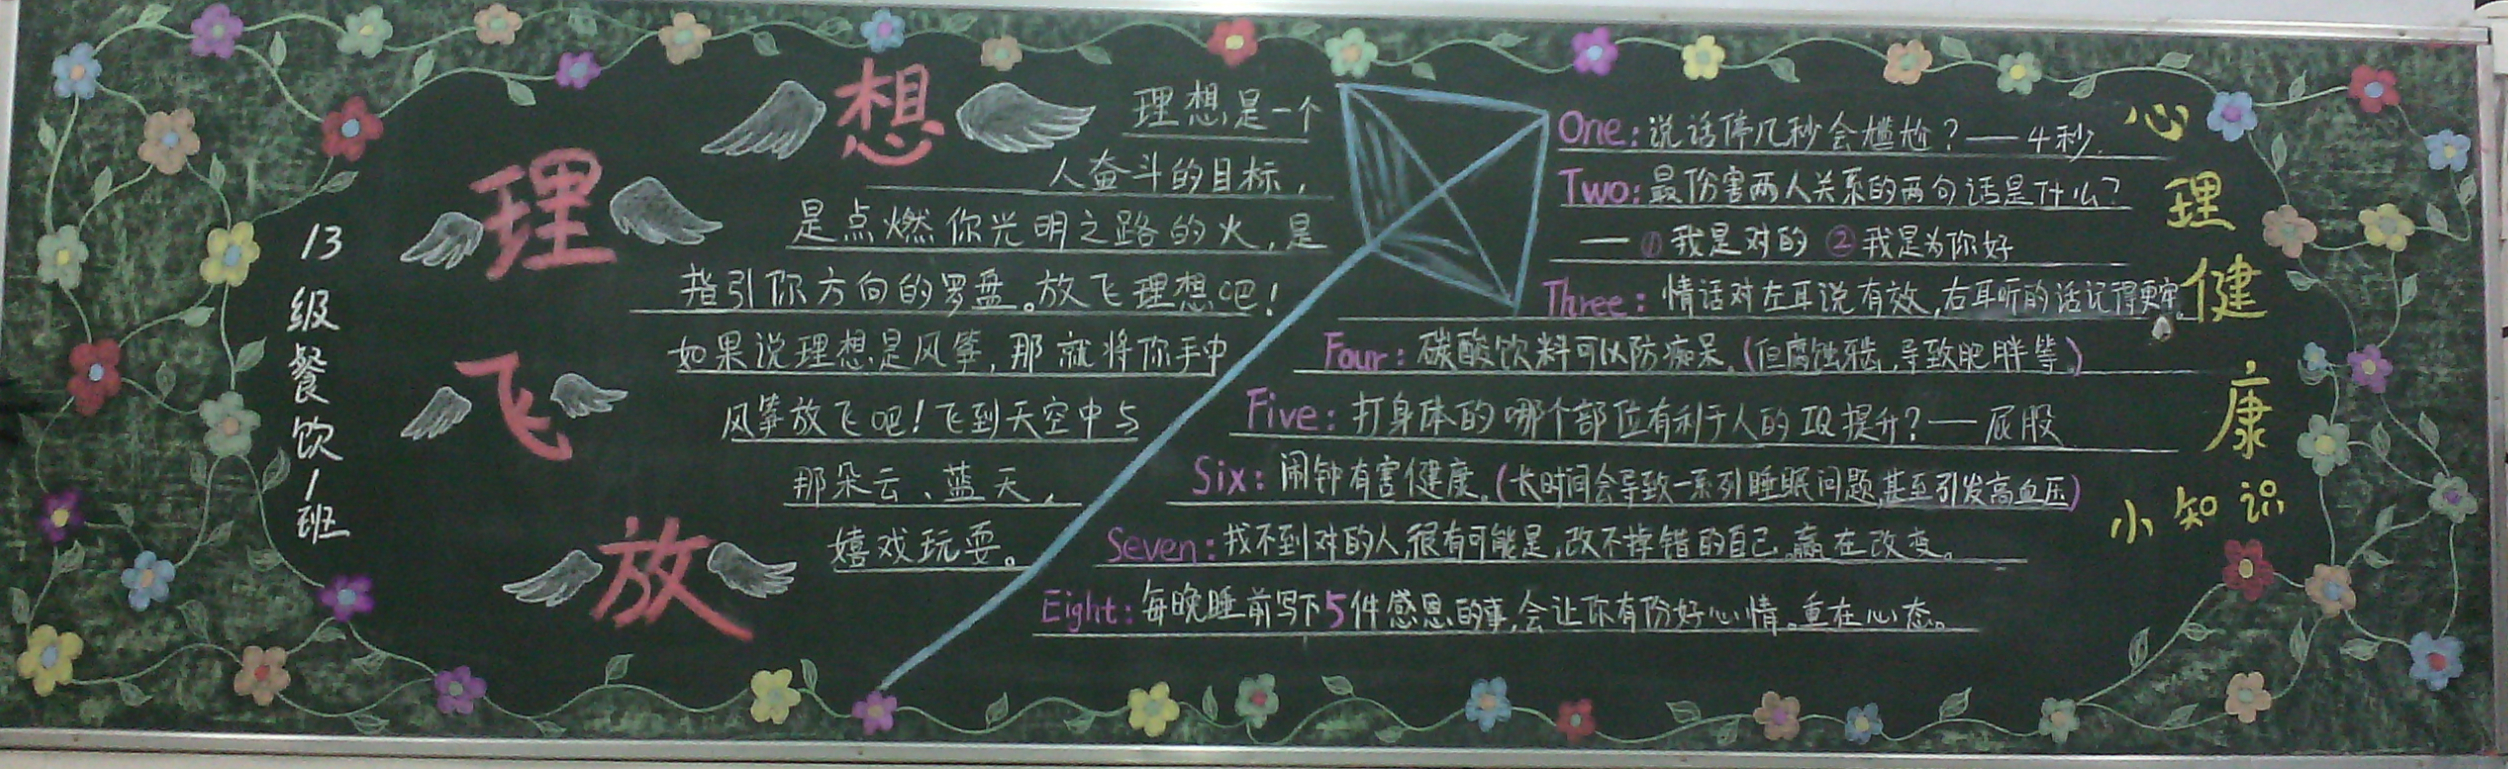 13级餐饮1班
放飞理想
理想是一个
人奋斗的目标，
是点燃你光明之路的火，是
指引你方向的罗盘。放飞理想吧！
如果说理想是风筝，那就将你手中
风筝放飞吧！飞到天空中与
那朵云、蓝天、
嬉戏玩耍。
心理健康
小知识
One：说话停几秒会尴尬？——4秒.
Two：最伤害两人关系的两句话是什么？
——①我是对的 ②我是为你好
Three：情话对左耳说有效，右耳听的话记得更牢。
Four：碳酸饮料可以防痴呆。（但腐蚀牙齿，导致肥胖等。）
Five：打身体的哪个部位有利于人的IQ提升？——屁股
Six：闹钟有害健康。（长时间会导致一系列睡眠问题，甚至引发高血压）
Seven：找不到对的人，很有可能是，改不掉错的自己。赢在改变。
Eight：每晚睡前写下5件感恩的事，会让你有份好心情。重在心态。